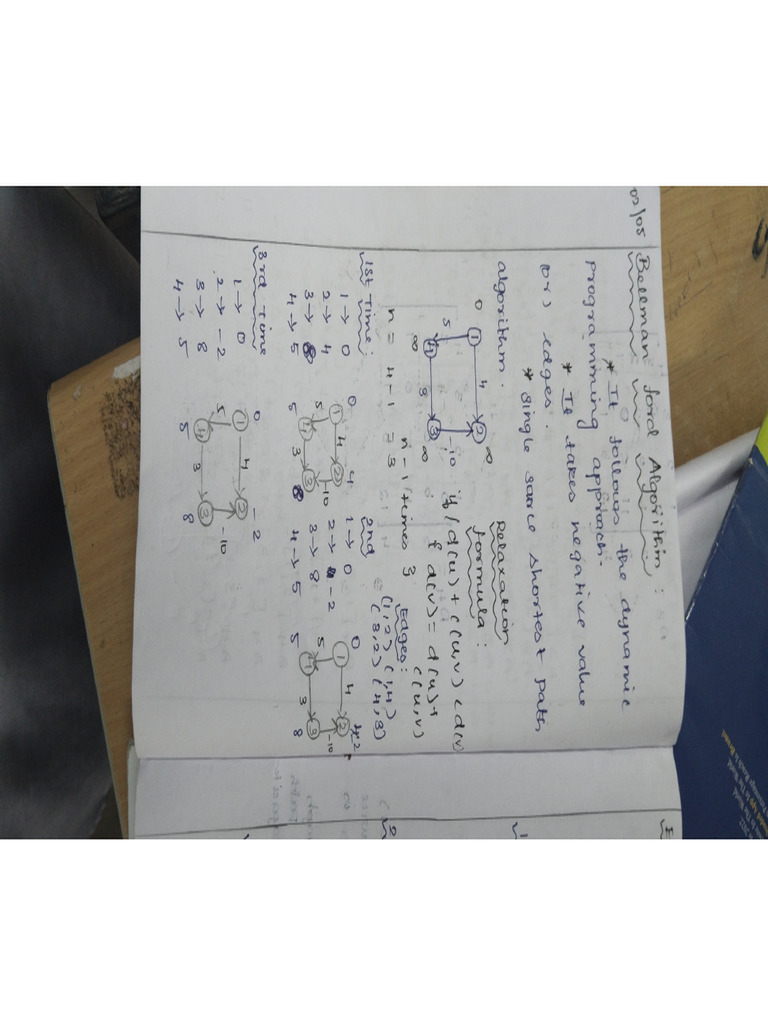 02/05
Bellman ford Algorithm :
* It follows the dynamic
programming approach.
* It takes negative value
(or) edges.
* Single source shortest path
algorithm.
0 1 4 2 ∞
5 -10
∞ 4 3 3 ∞
Relaxation
formula :
if (d(u) + c(u,v) < d(v)
{ d(v) = d(u) +
c(u,v)
n-1 times }
n = 4-1 = 3
Edges :
(1,2) (1,4)
(3,2) (4,3)
1st Time :
1 → 0
2 → 4
3 → 8
4 → 5
0 1 4 2 4
5 -10
5 4 3 3 8
2nd
1 → 0
2 → -2
3 → 8
4 → 5
0 1 4 2 -2
5 -10
5 4 3 3 8
3rd Time
1 → 0
2 → -2
3 → 8
4 → 5
0 1 4 2 -2
5 -10
5 4 3 3 8